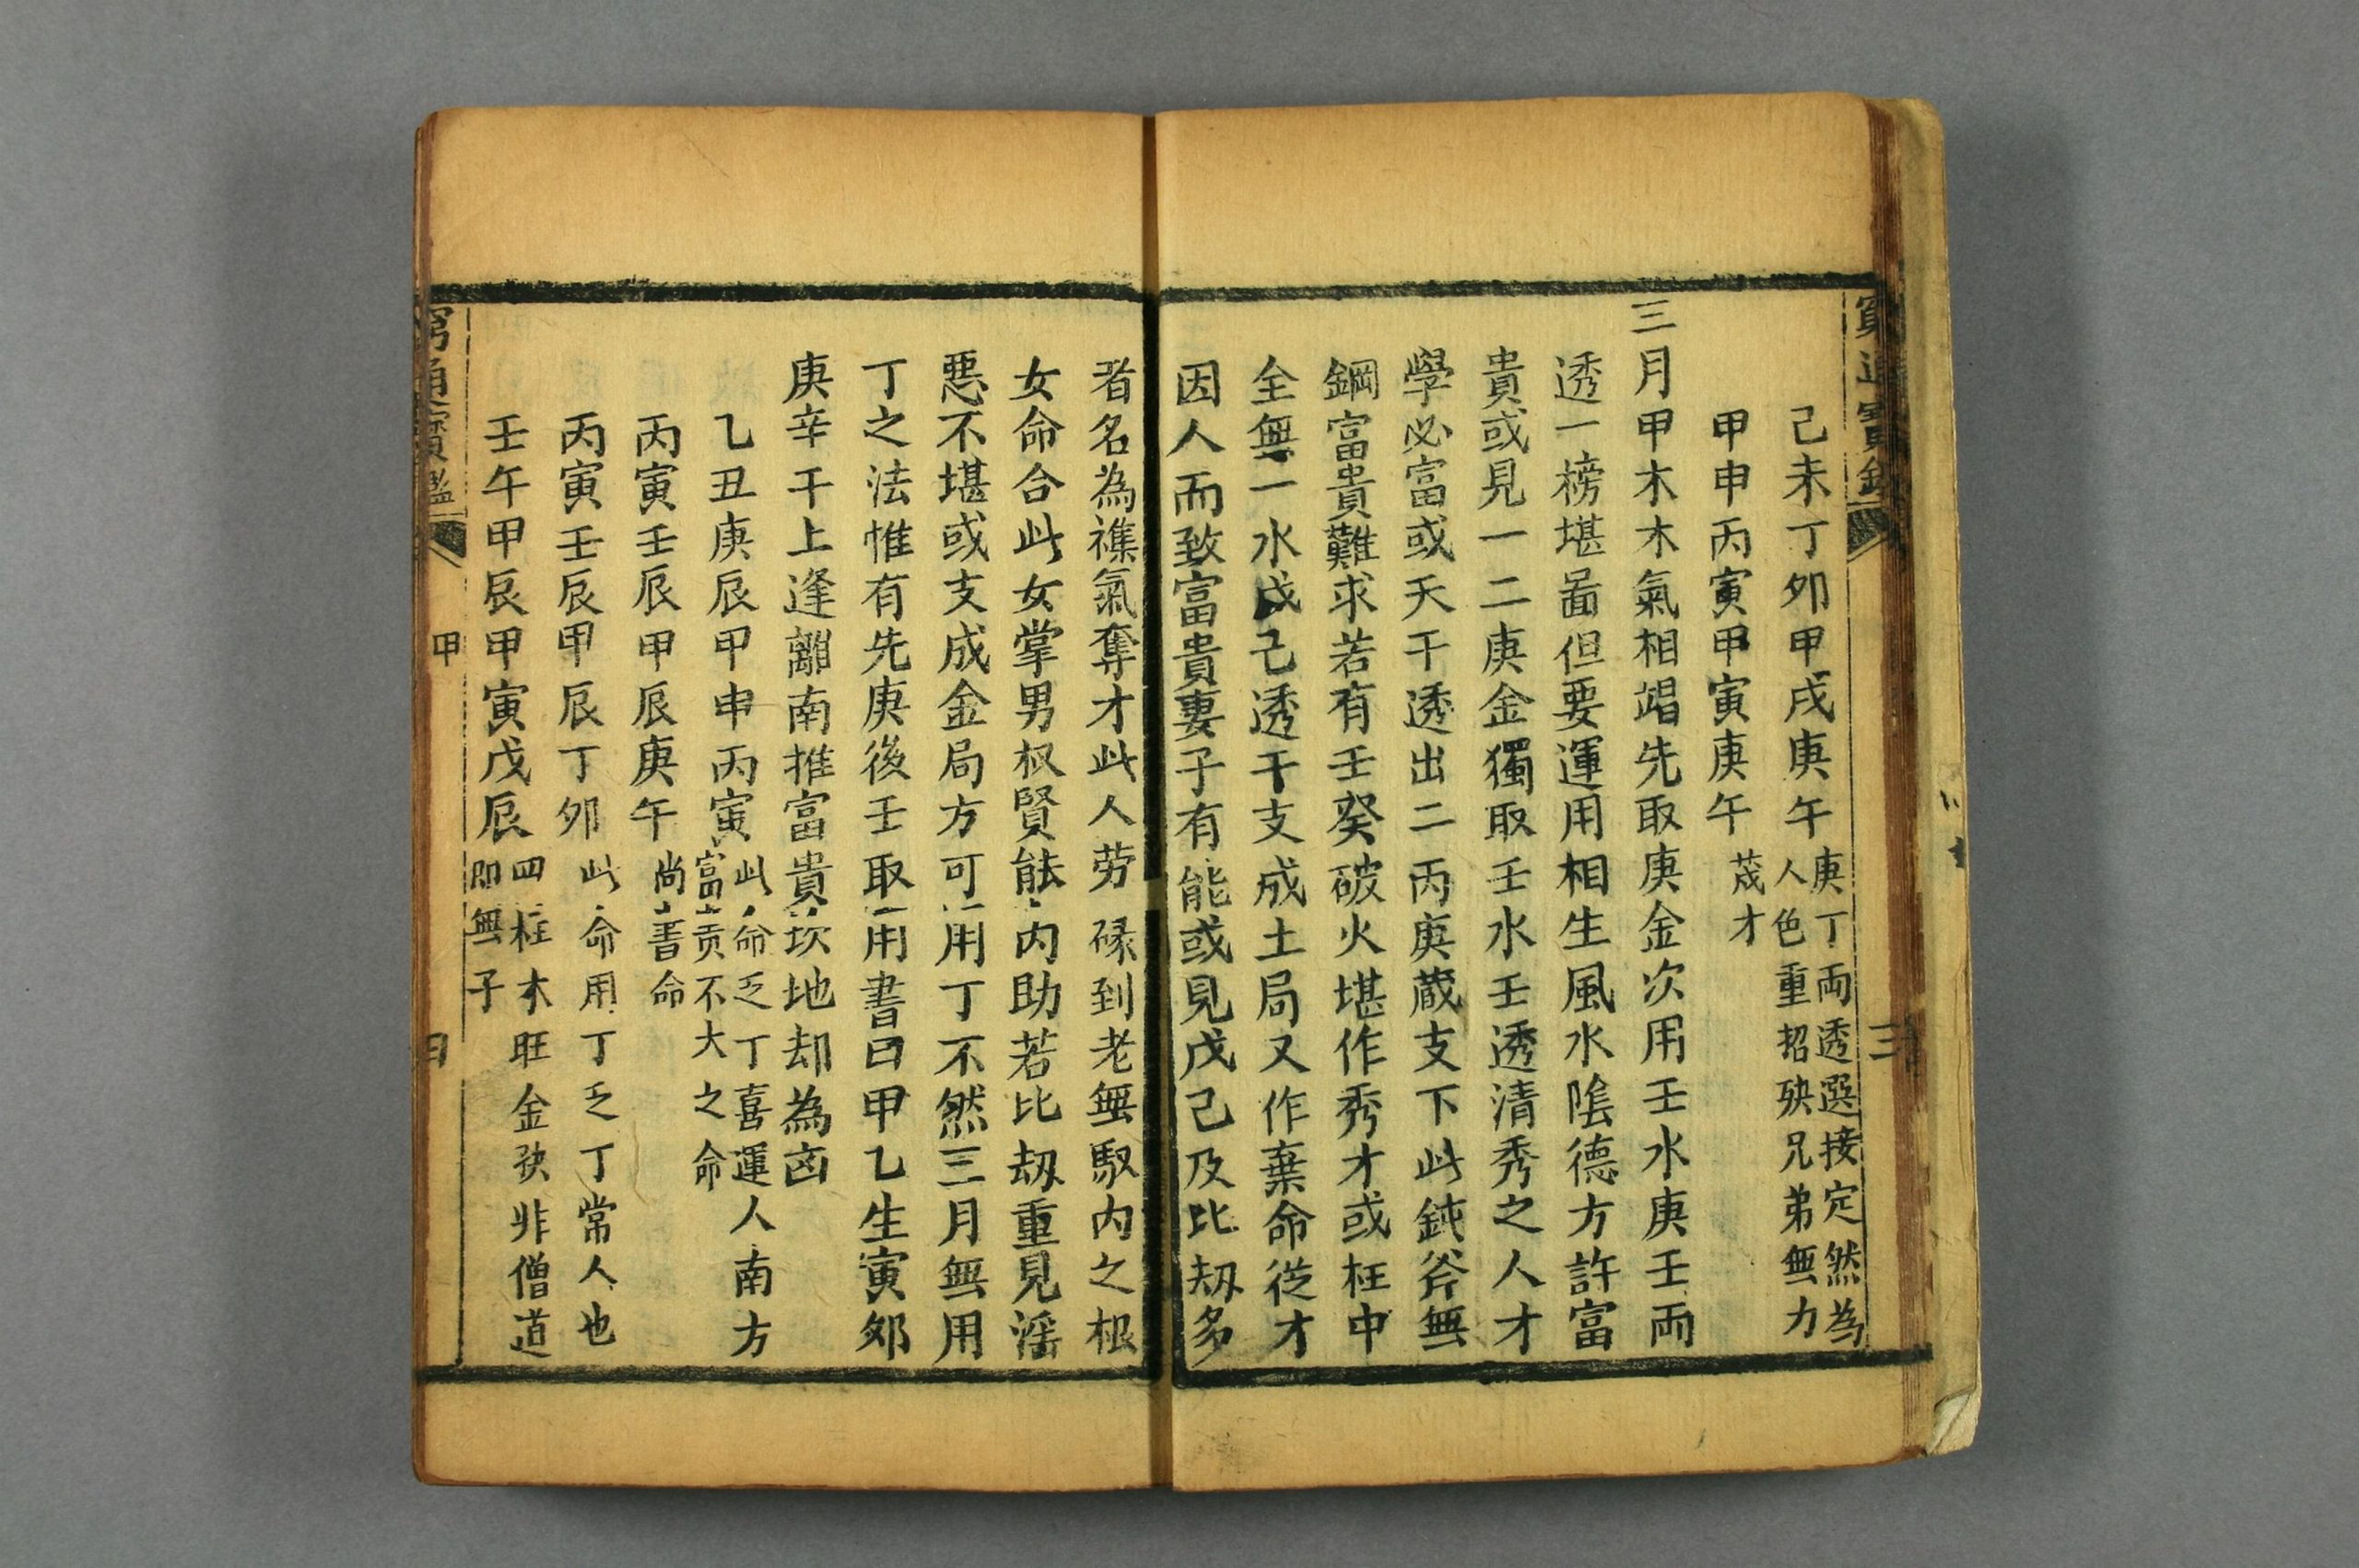 己未丁卯甲戌庚午庚丁兩透選接定然為
人色重招殃兄弟無力
甲申丙寅甲寅庚午茂才
三月甲木木氣相竭先取庚金次用壬水庚壬兩
透一榜堪啚但要運用相生風水陰德方許富
貴或見一二庚金獨取壬水壬透清秀之人才
學必富或天干透出二丙庚藏支下此鈍斧無
鋼富貴難求若有壬癸破火堪作秀才或柱中
全無一水戊己透干支成土局又作棄命從才
因人而致富貴妻子有能或見戊己及比刼多
者名為襍氣奪才此人勞碌到老無馭內之根
女命合此女掌男权賢能內助若比刼重見滛
惡不堪或支成金局方可用丁不然三月無用
丁之法惟有先庚後壬取用書曰甲乙生寅夘
庚辛干上逢離南推富貴坎地却為凶
乙丑庚辰甲申丙寅此命乏丁喜運人南方
富貢不大之命
丙寅壬辰甲辰庚午尚書命
丙寅壬辰甲辰丁卯此命用丁乏丁常人也
壬午甲辰甲寅戊辰四柱木旺金欤非僧道
即無子
甲